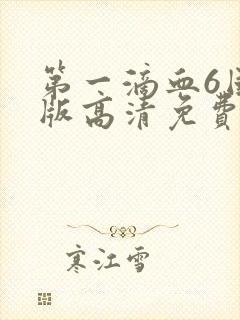 第一滴血6国
版高清免费
寒江雪